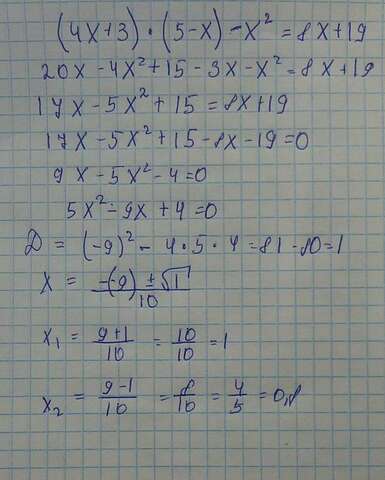 (4x+3)·(5-x)-x²=8x+19
20x-4x²+15-3x-x²=8x+19
17x-5x²+15=8x+19
17x-5x²+15-8x-19=0
9x-5x²-4=0
5x²-9x+4=0
D=(-9)²-4·5·4=81-80=1
x=\frac{-(-9)±√1}{10}
x₁=\frac{9+1}{10}=\frac{10}{10}=1
x₂=\frac{9-1}{10}=\frac{8}{10}=\frac{4}{5}=0,8